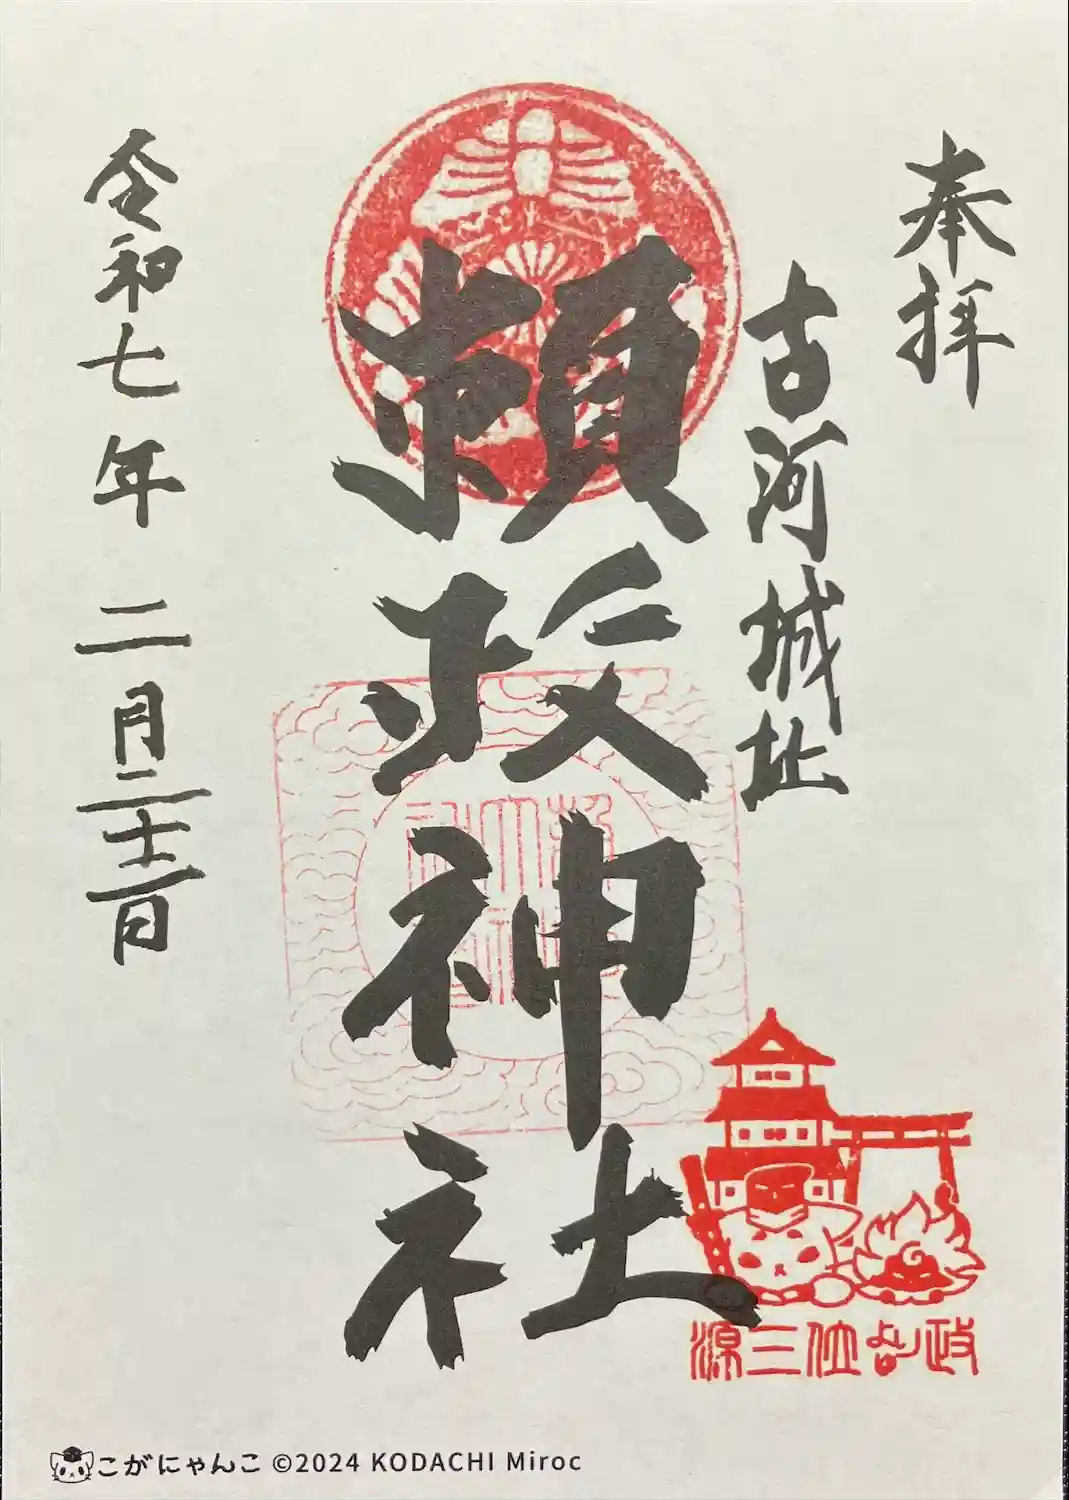 奉拝
古河城址
頼政神社
令和七年二月二十二日
源三位より政
こがにゃんこ ©2024 KODACHI Miroc